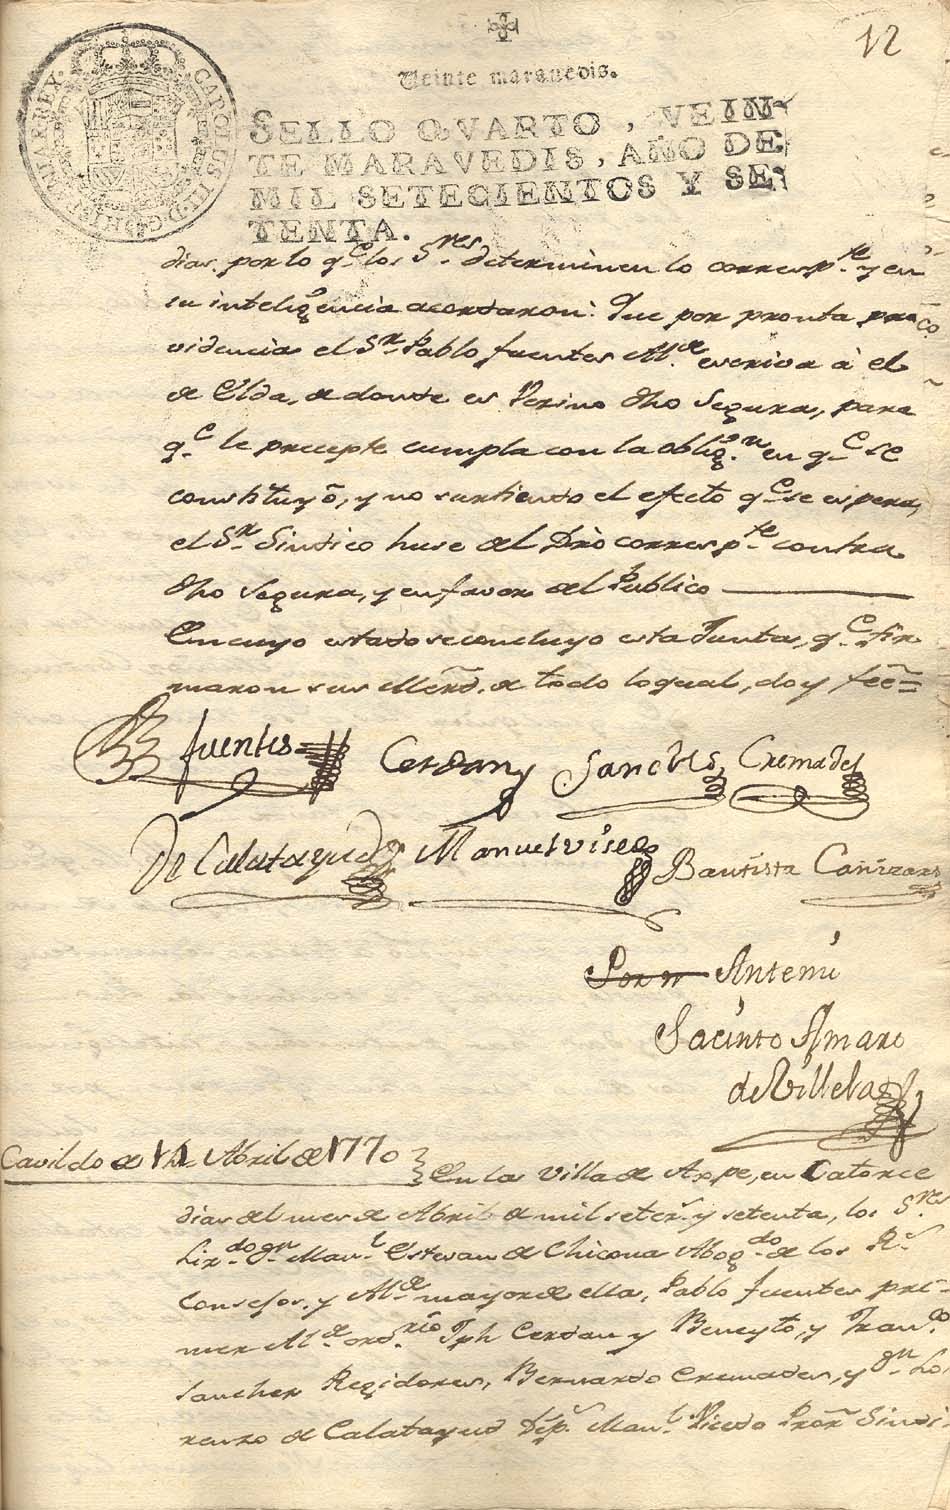 12
Veinte maravedis.
CAROLUS III D G HISPANIAR REX
SELLO QVARTO, VEIN-
TE MARAVEDIS, AÑO DE
MIL SETECIENTOS Y SE-
TENTA.
dias, por lo q.e los S.res determinen lo corresp.te y en
su inteligencia acordaron: Que por pronta pro
videncia el S.r Pablo fuentes Al.de escriva à el
de Elda, de donde es Vecino dho Segura, para
q.e le precepte cumpla con la oblig.n en q.e se
constituyó, y no surtiendo el efecto q.e se espera,
el S.r Sindico huse del Dro corresp.te contra
dho Segura, y en favor del Publico
En cuyo estado se concluyo esta Junta, q.e fir
maron sus Merd.s de todo lo qual, doy feé=
fuentes Cerdan Sanches Cremades
De Calatayud Manuel Visedo Bautista Cañizares
Por n Antemi
Jacinto Amaro
de Villela
Cavildo de 14 Abril de 1770
En la Villa de Aspe, en Catorce
dias del mes de Abril de mil setec.s y setenta, los S.res
Liz.do d.n Man.l Estevan de Chicona Abog.do de los R.s
Consejos, y Al.de mayor de ella, Pablo fuentes pri-
mer Al.de ord.rio Jph Cerdan y Beneyto, y Fran.co
Sanchez Regidores, Bernardo Cremades, y d.n Lo
renzo de Calatayud Dip.s Man.l Visedo Pror Sindi-